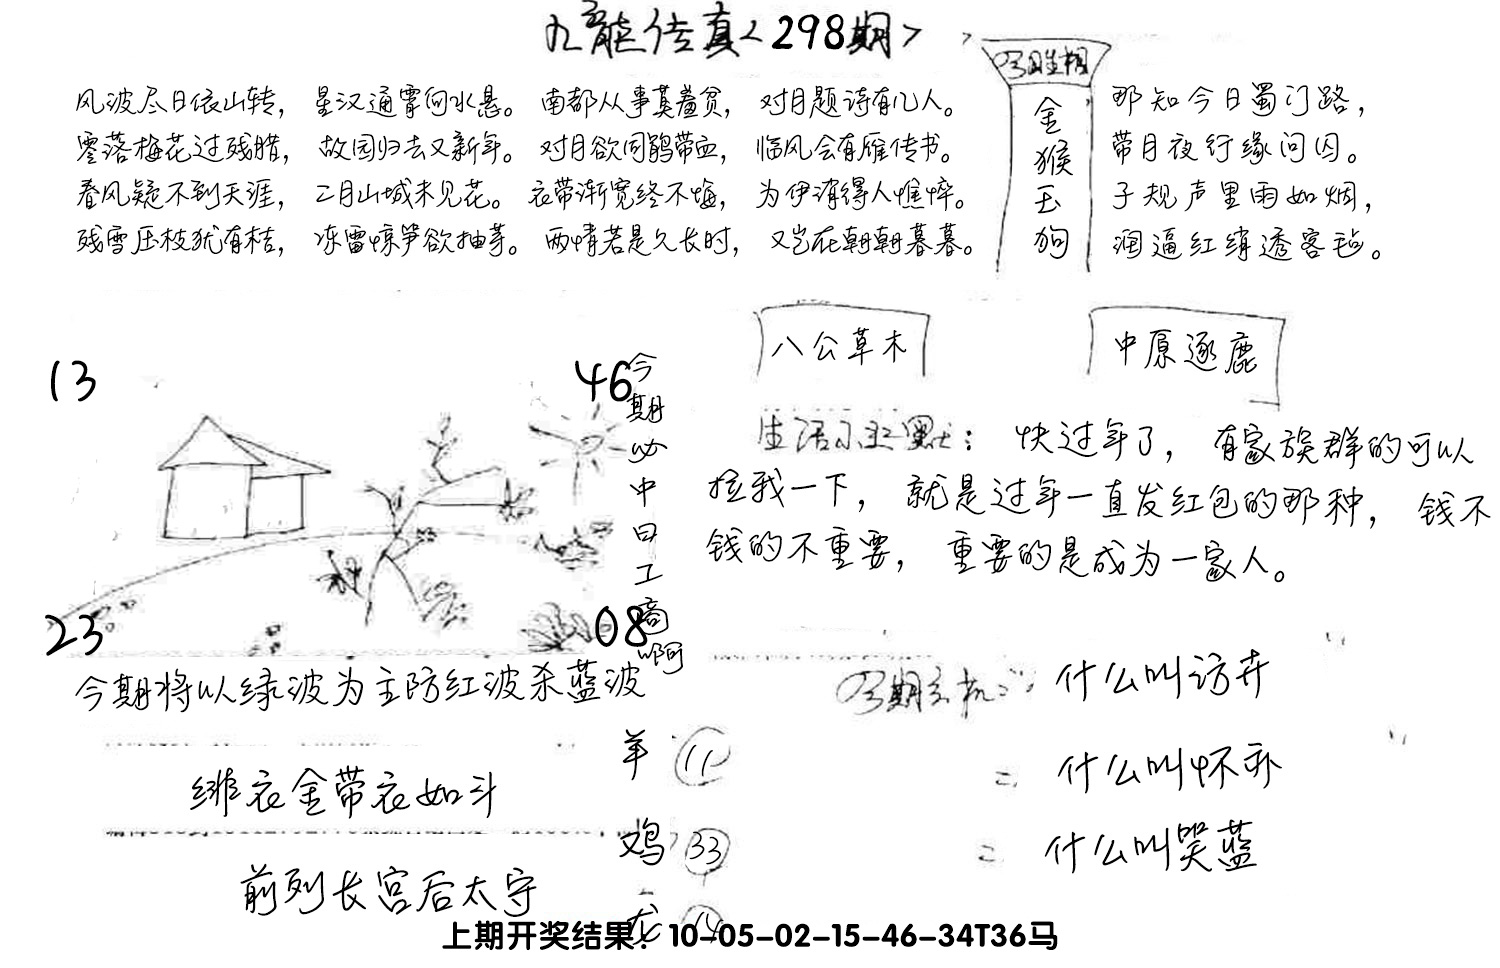 九龙传真<298期>
风波尽日依山转， 星汉通霄向水悬。 南都从事莫羞贫， 对月题诗有几人。
零落梅花过残腊， 故园归去又新年。 对月欲问鹃带血， 临风会有雁传书。
春风疑不到天涯， 二月山城未见花。 衣带渐宽终不悔， 为伊消得人憔悴。
残雪压枝犹有桔， 冻雷惊笋欲抽芽。 两情若是久长时， 又岂在朝朝暮暮。
金
猴
玉
狗
那知今日蜀门路，
带月夜行缘问囚。
子规声里雨如烟，
润逼红绡透客毡。
八公草木
中原逐鹿
13
46
23
08
今
期
必
中
曰
工
商
啊
生活小幽默： 快过年了， 有家族群的可以
拉我一下， 就是过年一直发红包的那种， 钱不
钱的不重要， 重要的是成为一家人。
今期将以绿波为主防红波杀蓝波
绯衣金带衣如斗
前列长宫后太守
羊 11
鸡 33
龙 14
今期玄机： 什么叫访卉
= 什么叫怀孙
= 什么叫哭蓝
上期开奖结果：10-05-02-15-46-34T36马